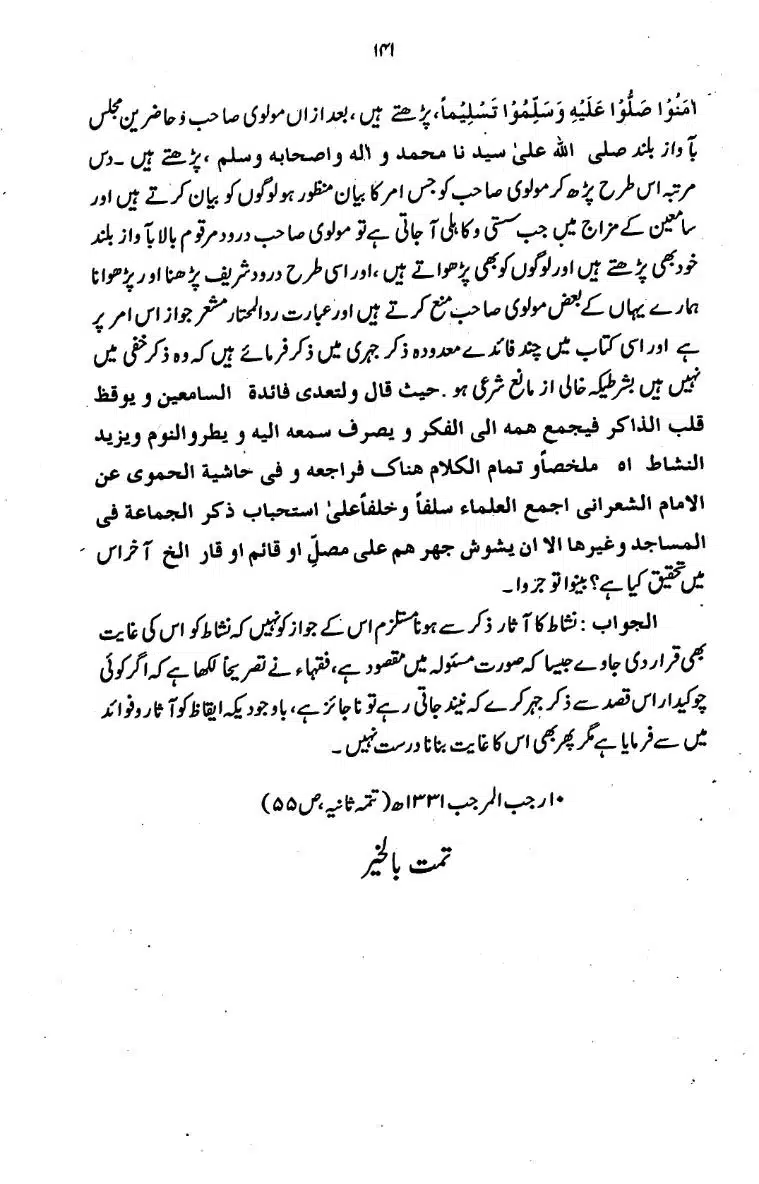 ۱۴۱
اٰمَنُوْا صَلُّوْا عَلَيْهِ وَسَلِّمُوْا تَسْلِيْماً، پڑھتے ہیں، بعد ازاں مولوی صاحب و حاضرین مجلس
بآواز بلند صلى الله علىٰ سيد نا محمد و اٰله واصحابه وسلم ، پڑھتے ہیں ۔ دس
مرتبہ اس طرح پڑھ کر مولوی صاحب کو جس امر کا بیان منظور ہو لوگوں کو بیان کرتے ہیں اور
سامعین کے مزاج میں جب سستی و کاہلی آ جاتی ہے تو مولوی صاحب درود مرقوم بالا بآواز بلند
خود بھی پڑھتے ہیں اور لوگوں کو بھی پڑھواتے ہیں، اور اسی طرح درود شریف پڑھنا اور پڑھوانا
ہمارے یہاں کے بعض مولوی صاحب منع کرتے ہیں اور عبارت ردالمحتار مشعر جواز اس امر پر
ہے اور اسی کتاب میں چند فائدے معدودہ ذکر جہری میں ذکر فرمائے ہیں کہ وہ ذکر خفی میں
نہیں ہیں بشرطیکہ خالی از مانع شرعی ہو . حيث قال ولتعدى فائدة السامعين و يوقظ
قلب الذاكر فيجمع همه الى الفكر و يصرف سمعه اليه و يطروالنوم ويزيد
النشاط اه ملخصاًو تمام الكلام هناك فراجعه و فى حاشية الحموى عن
الامام الشعرانى اجمع العلماء سلفاً وخلفاًعلىٰ استحباب ذكر الجماعة فى
المساجد وغيرها الا ان يشوش جهر هم على مصلٍّ او قائم او قار الخ آخر اس
میں تحقیق کیا ہے؟ بینوا تو جروا۔
الجواب : نشاط کا آثار ذکر سے ہونا مستلزم اس کے جواز کو نہیں کہ نشاط کو اس کی غایت
بھی قرار دی جاوے جیسا کہ صورت مسئولہ میں مقصود ہے، فقہاء نے تصریحاً لکھا ہے کہ اگر کوئی
چوکیدار اس قصد سے ذکر جہر کرے کہ نیند جاتی رہے تو ناجائز ہے، باوجودیکہ ایقاظ کو آثار و فوائد
میں سے فرمایا ہے مگر پھر بھی اس کا غایت بنانا درست نہیں۔
۱۰ رجب المرجب ۱۳۳۱ھ (تتمہ ثانیہ، ص ۵۵)
تمت بالخیر